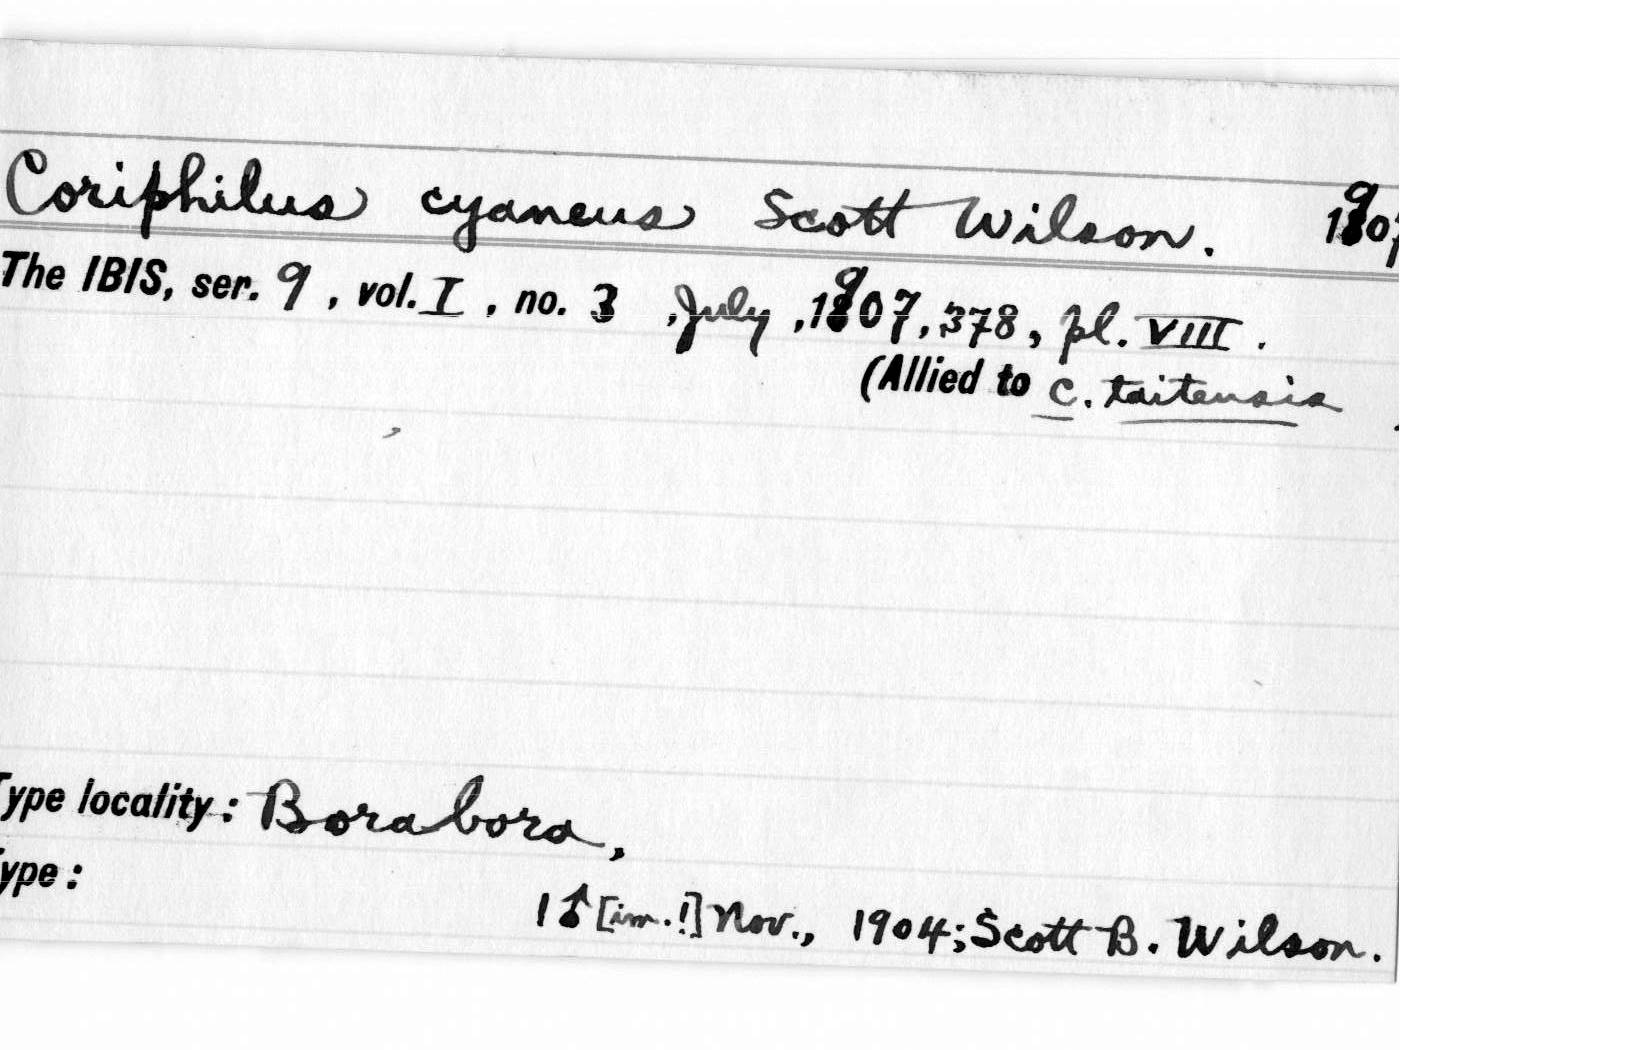 Coriphilus cyaneus Scott Wilson. 1907
The IBIS, ser. 9, vol. I, no. 3, July, 1907, 378, pl. VIII.
(Allied to C. taitensis
Type locality: Borabora,
Type:
1 ♂ [im.!] Nov., 1904; Scott B. Wilson.